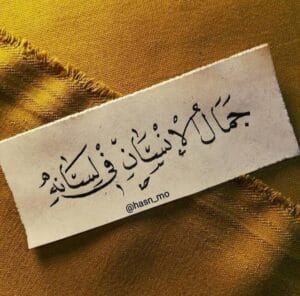 جَمَالُ الإِنْسَانِ فِي لِسَانِهِ
@hasn_mo